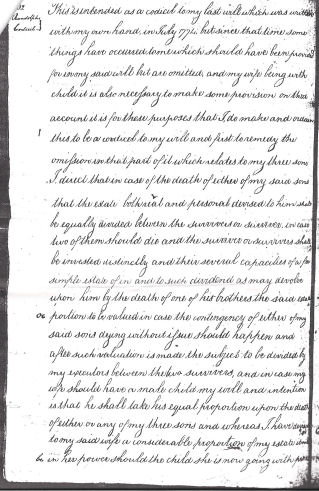 32
Randolph's
Codicil
This is intended as a codical to my last will which was written
with my own hand, in July 1772, but since that time some
things have occurred to me which should have been provided
for in my said will but are omitted, and my wife being with
child it is also necessary to make some provision on that
account it is for these purposes that I do make and ordain
this to be a codicil to my will and first to remedy the
omission in that part of it which relates to my three sons
I direct that in case of the death of either of my said sons
that the estate both real and personal devised to him shall
be equally divided between the survivors or survivor, in case
two of them should die and the survivor or survivers shall
be invested distinctly and their several capacities of a fee
simple estate of in and to such dividend as may devolve
upon him by the death of one of his brothers the said
portion to be valued in case the contingency of either of my
said sons dying without issue should happen and
after such valuation is made the subject to be divided by
my executors between the two survivers, and in case my
wife should have a male child my will and intention
is that he shall take his equal proportion upon the death
of either or any of my three sons and whereas I have
to my said wife a considerable proportion of my estate
in her power should the child she is now going with